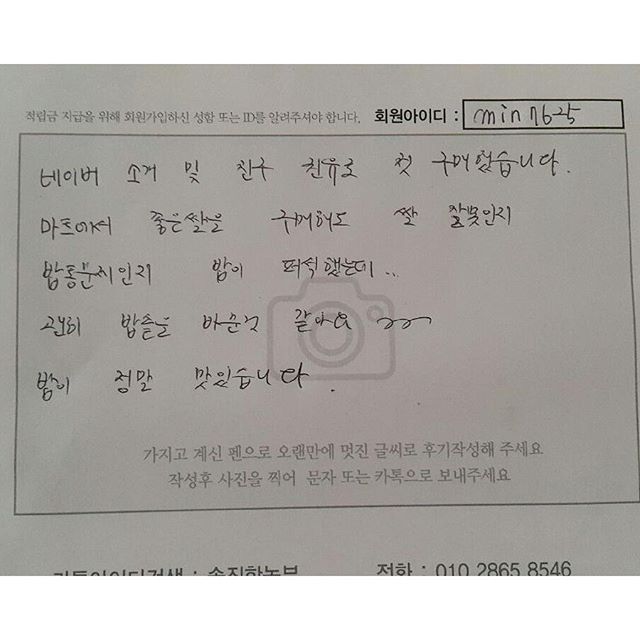 적립금 지급을 위해 회원가입하신 성함 또는 ID를 알려주셔야 합니다. 회원아이디 : min7625
네이버 소개 및 친구 권유로 첫 구매했습니다.
마트에서 좋은쌀을 구매해도 쌀 잘못인지
밥통문제인지 밥이 퍼석했는데...
괜히 밥솥을 바꾼것 같아요 ~~
밥이 정말 맛있습니다.
가지고 계신 펜으로 오랜만에 멋진 글씨로 후기작성해 주세요
작성후 사진을 찍어 문자 또는 카톡으로 보내주세요
전화 : 010 2865 8546